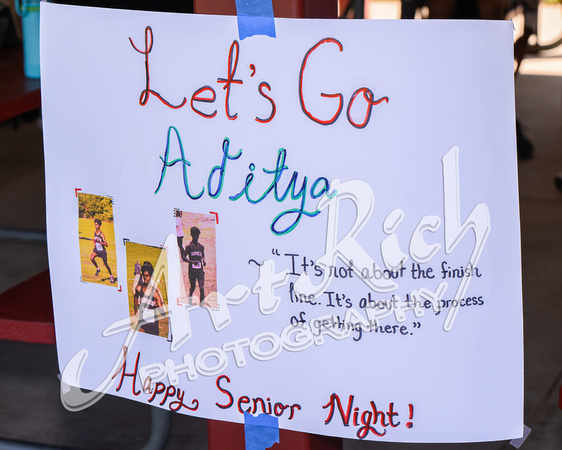 Let's Go
Aditya
~ "It's not about the finish
line. It's about the process
of getting there."
Happy Senior Night!
Art Rich
PHOTOGRAPHY